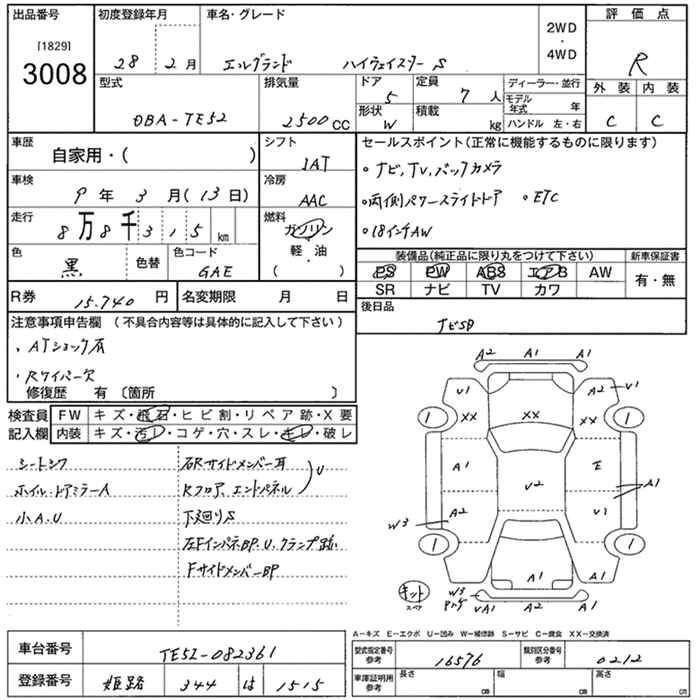 出品番号
[1829]
3008
初度登録年月
28 2月
車名・グレード
エルグランド ハイウェイスター S
2WD
・
4WD
評価点
R
外装 内装
C C
型式
DBA-TE52
排気量
2500CC
ドア
5
定員
7人
形状
W
積載
kg
ディーラー・並行
モデル年式 年
ハンドル 左・右
車歴
自家用・( )
シフト
IAT
セールスポイント(正常に機能するものに限ります)
・ナビ,TV,バックカメラ
・両側パワースライドドア ・ETC
・18インチAW
車検
9年3月(13日)
冷房
AAC
走行
8万8千315km
燃料
ガソリン
軽・油
( )
色
黒
色替
色コード
GAE
装備品(純正品に限り丸をつけて下さい)
PS PW ABS エアB AW
SR ナビ TV カワ
新車保証書
有・無
R券 15.740円
名変期限 月 日
後日品
ナビSD
注意事項申告欄 (不具合内容等は具体的に記入して下さい)
・ATショック有
・Rワイパー欠
修復歴 有 〔箇所 〕
検査員
記入欄
FW キズ・飛石・ヒビ割・リペア跡・X要
内装 キズ・汚レ・コゲ・穴・スレ・キレ・破レ
シートシワ
ホイル・ドアミラーA
小A.U
右Rサイドメンバー耳
Rフロア、エンドパネル U
下廻りS
左FインパネBP.U.クランプ跡
FサイドメンバーBP
A2 A1 A1
V1 A2 V1
XX XX XX
1 1
A1 E
V2 A1
A2 V1
W3
1 1
A1 A1
キット
スペア
W3
VA1 A2 A1
A-キズ E-エクボ U-凹み W-補修跡 S-サビ C-腐食 XX-交換済
車台番号
TE52-082361
登録番号
姫路 344 は 1515
型式指定番号
参考
16576
類別区分番号
参考
0212
車庫証明用
参考
長さ cm
幅 cm
高さ cm